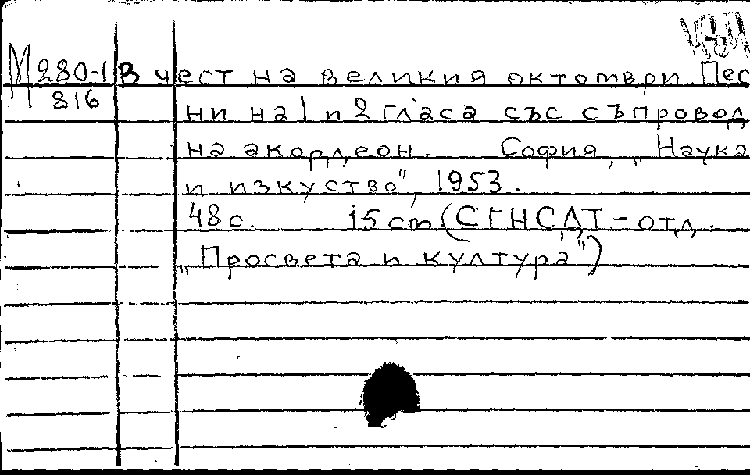 М 280-1 В чест на великия октомври. Пес
816 ни на 1 и 2 гласа със съпровод
на акордеон. София, „Наука
и изкуство", 1953.
48 с. 15 cm (СГНСДТ - отд.
„Просвета и култура")